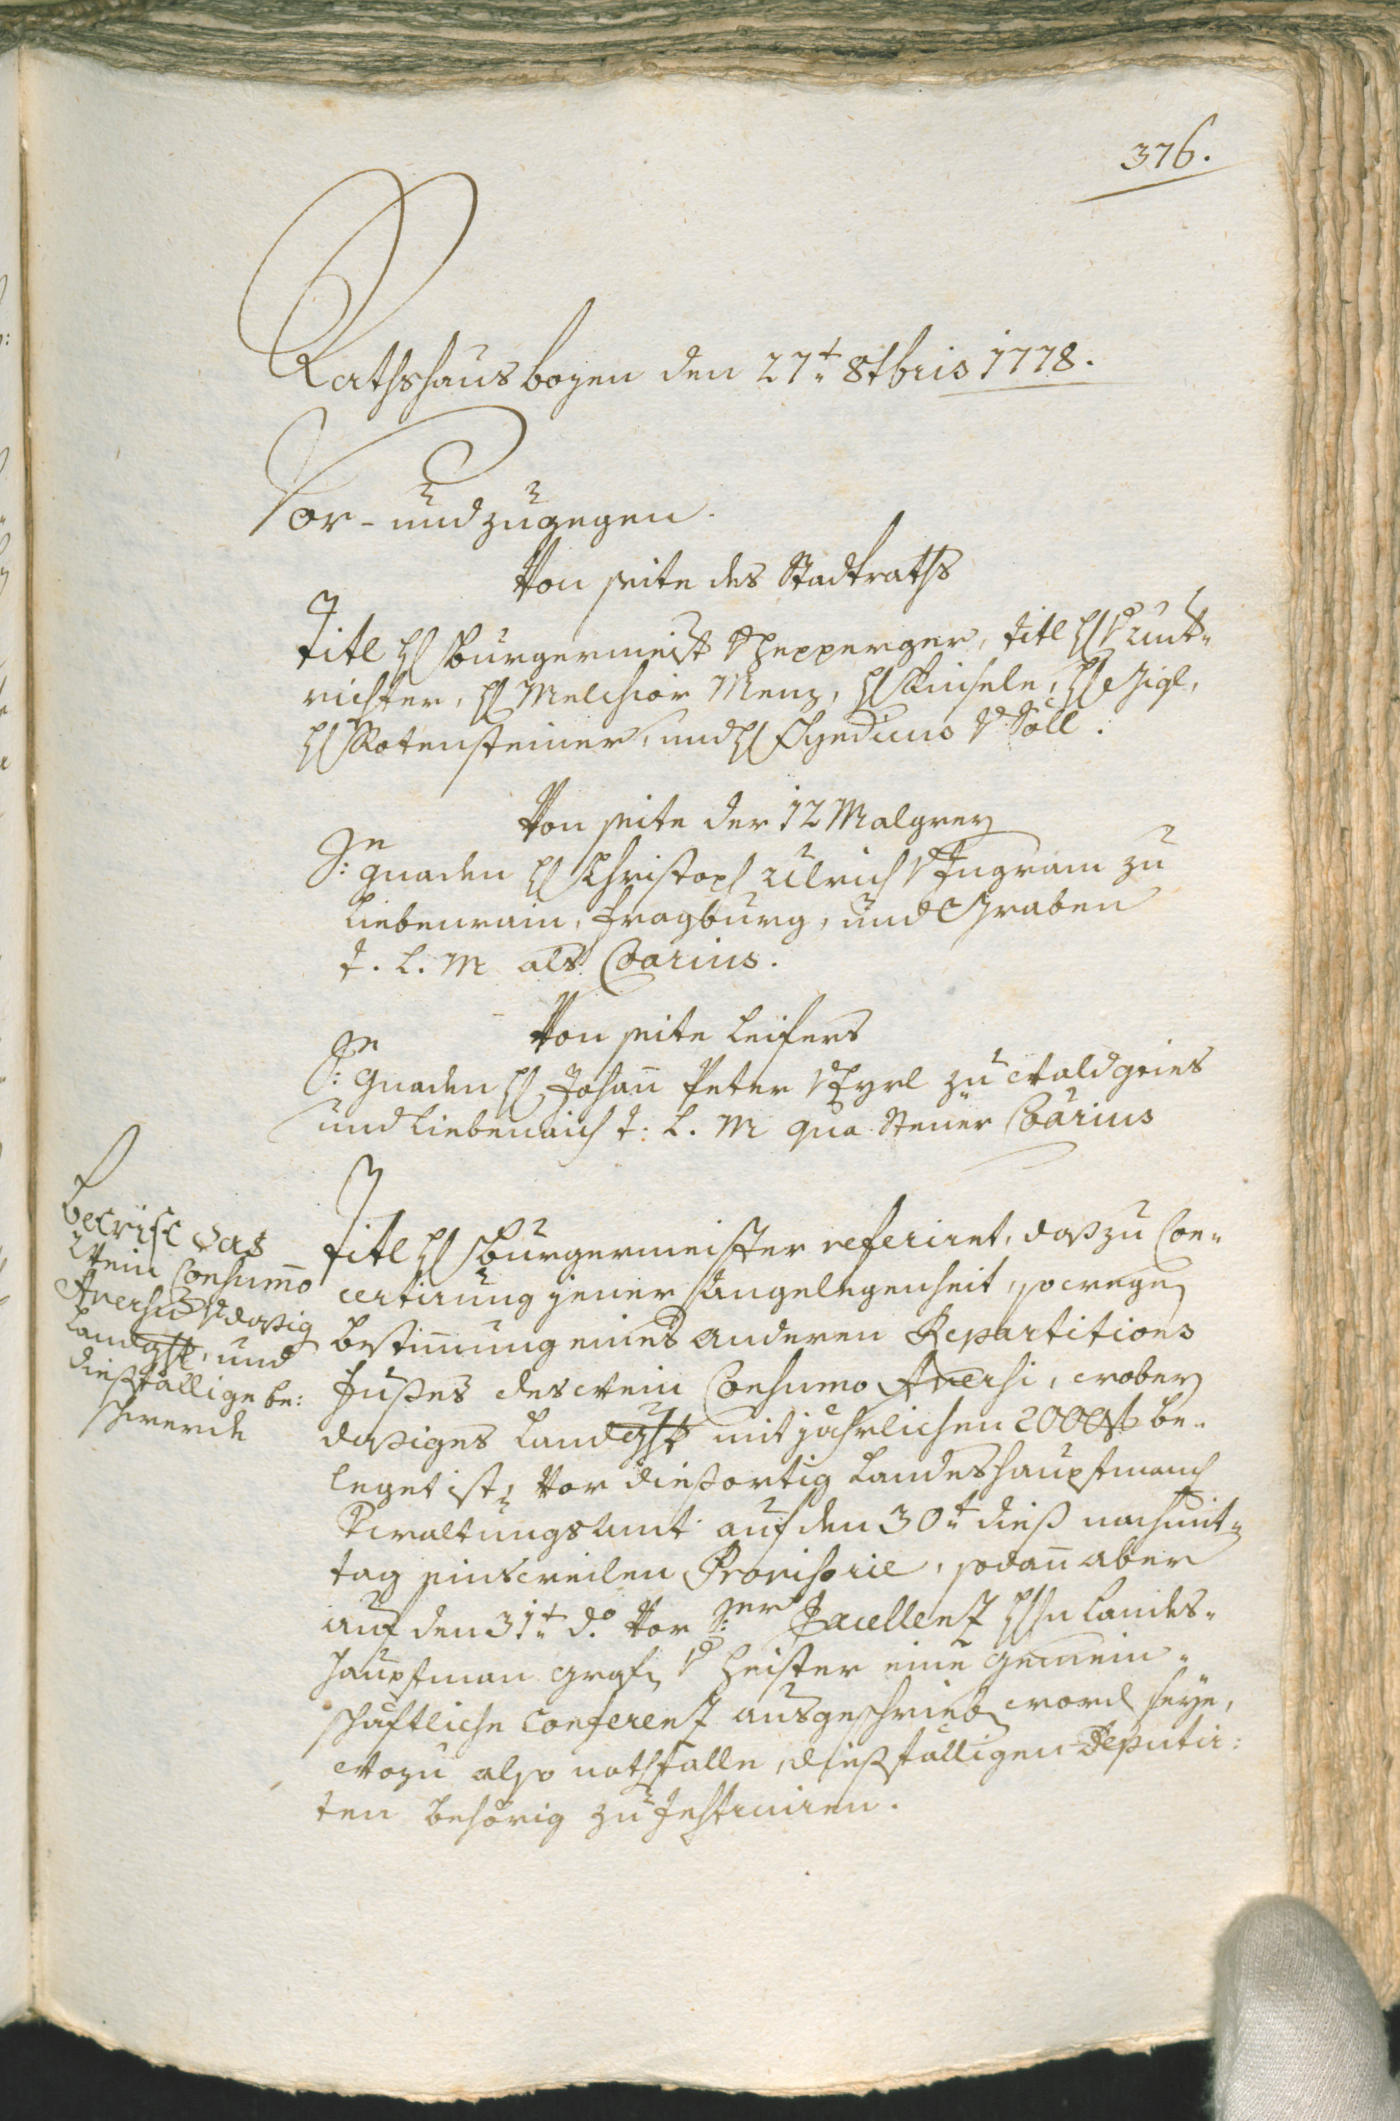 376.
Rathshaus bozen den 27t 8tbris 1778.
Vor- und zugegen.
Von seite des Stadtraths
Titl H Burgermeist v Hepperger, titl H v
richter, H Melchior Menz, H Kinsele, H Gigl,
H Rotensteiner, und H Egedius v Söll.
Von seite der 12 Malgrey
Sr: gnaden H Christoph Ulrich v Ingram zu
Liebenrain, Fragburg, und Graben
t. L. M als Coarius.
Von seite Leifers
Sr: Gnaden H Johann Peter v Eyrl zu Waldgries
und Liebenaich t: L. M qua Steuer Coarius
Betrift das
Wein Consumo
Aversum dasig
Landgrts, und
diesfällige be:
schwerde
Titl H Burgermeister referiret, daß zu Con-
certirung jener Angelegenheit, so wegen
bestimung eines anderen Repartitions
Fußes des Wein Consumo Aversi, wobey
dasiges Landgrt mit jährlichen 2000 f be-
leget ist, Vor diesortig Landeshauptmansch
Verwaltungsamt auf den 30t dieß nachmit-
tag einsweilen Provisorie, sodann aber
auf den 31t do. Vor Sr: Excellenz H Landes-
hauptman grafen v Heister eine gemein-
schaftliche Conferenz ausgeschrieben word seye,
wozu also nothfalls, diesfälligen Deputir:
ten behörig zu Instruiren.